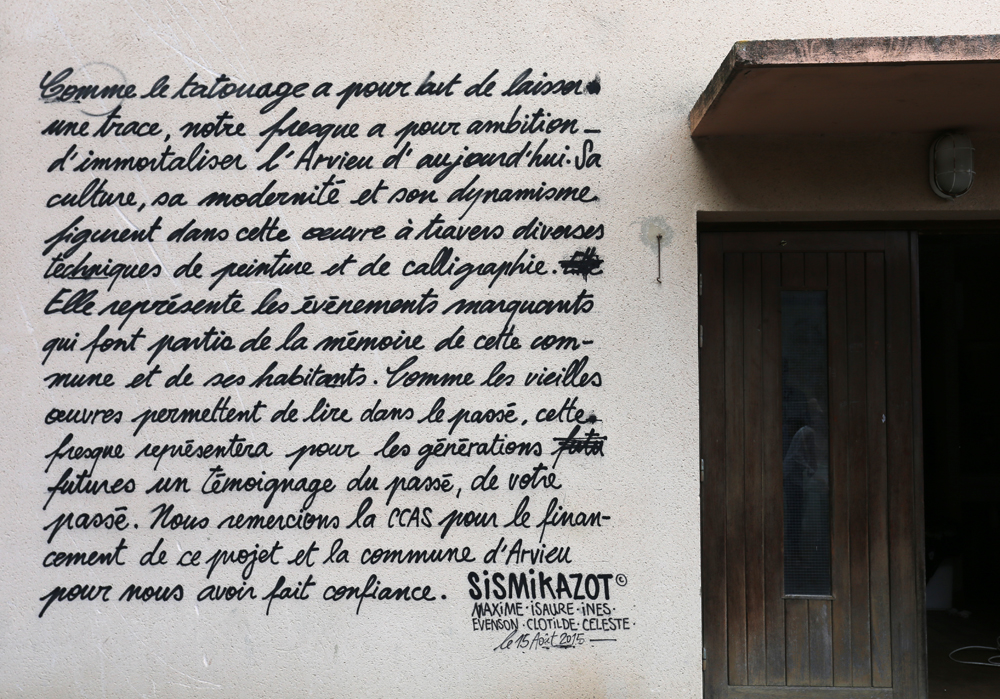 Comme le tatouage a pour but de laisser
une trace, notre fresque a pour ambition
d'immortaliser l'Arvieu d'aujourd'hui. Sa
culture, sa modernité et son dynamisme
figurent dans cette œuvre à travers diverses
techniques de peinture et de calligraphie.
Elle représente les évènements marquants
qui font partie de la mémoire de cette com-
mune et de ses habitants. Comme les vieilles
œuvres permettent de lire dans le passé, cette
fresque représentera pour les générations
futures un témoignage du passé, de votre
passé. Nous remercions la CCAS pour le finan-
cement de ce projet et la commune d'Arvieu
pour nous avoir fait confiance.
SISMIKAZOT©
MAXIME · ISAURE · INES ·
EVENSON · CLOTILDE · CELESTE ·
le 15 Août 2015